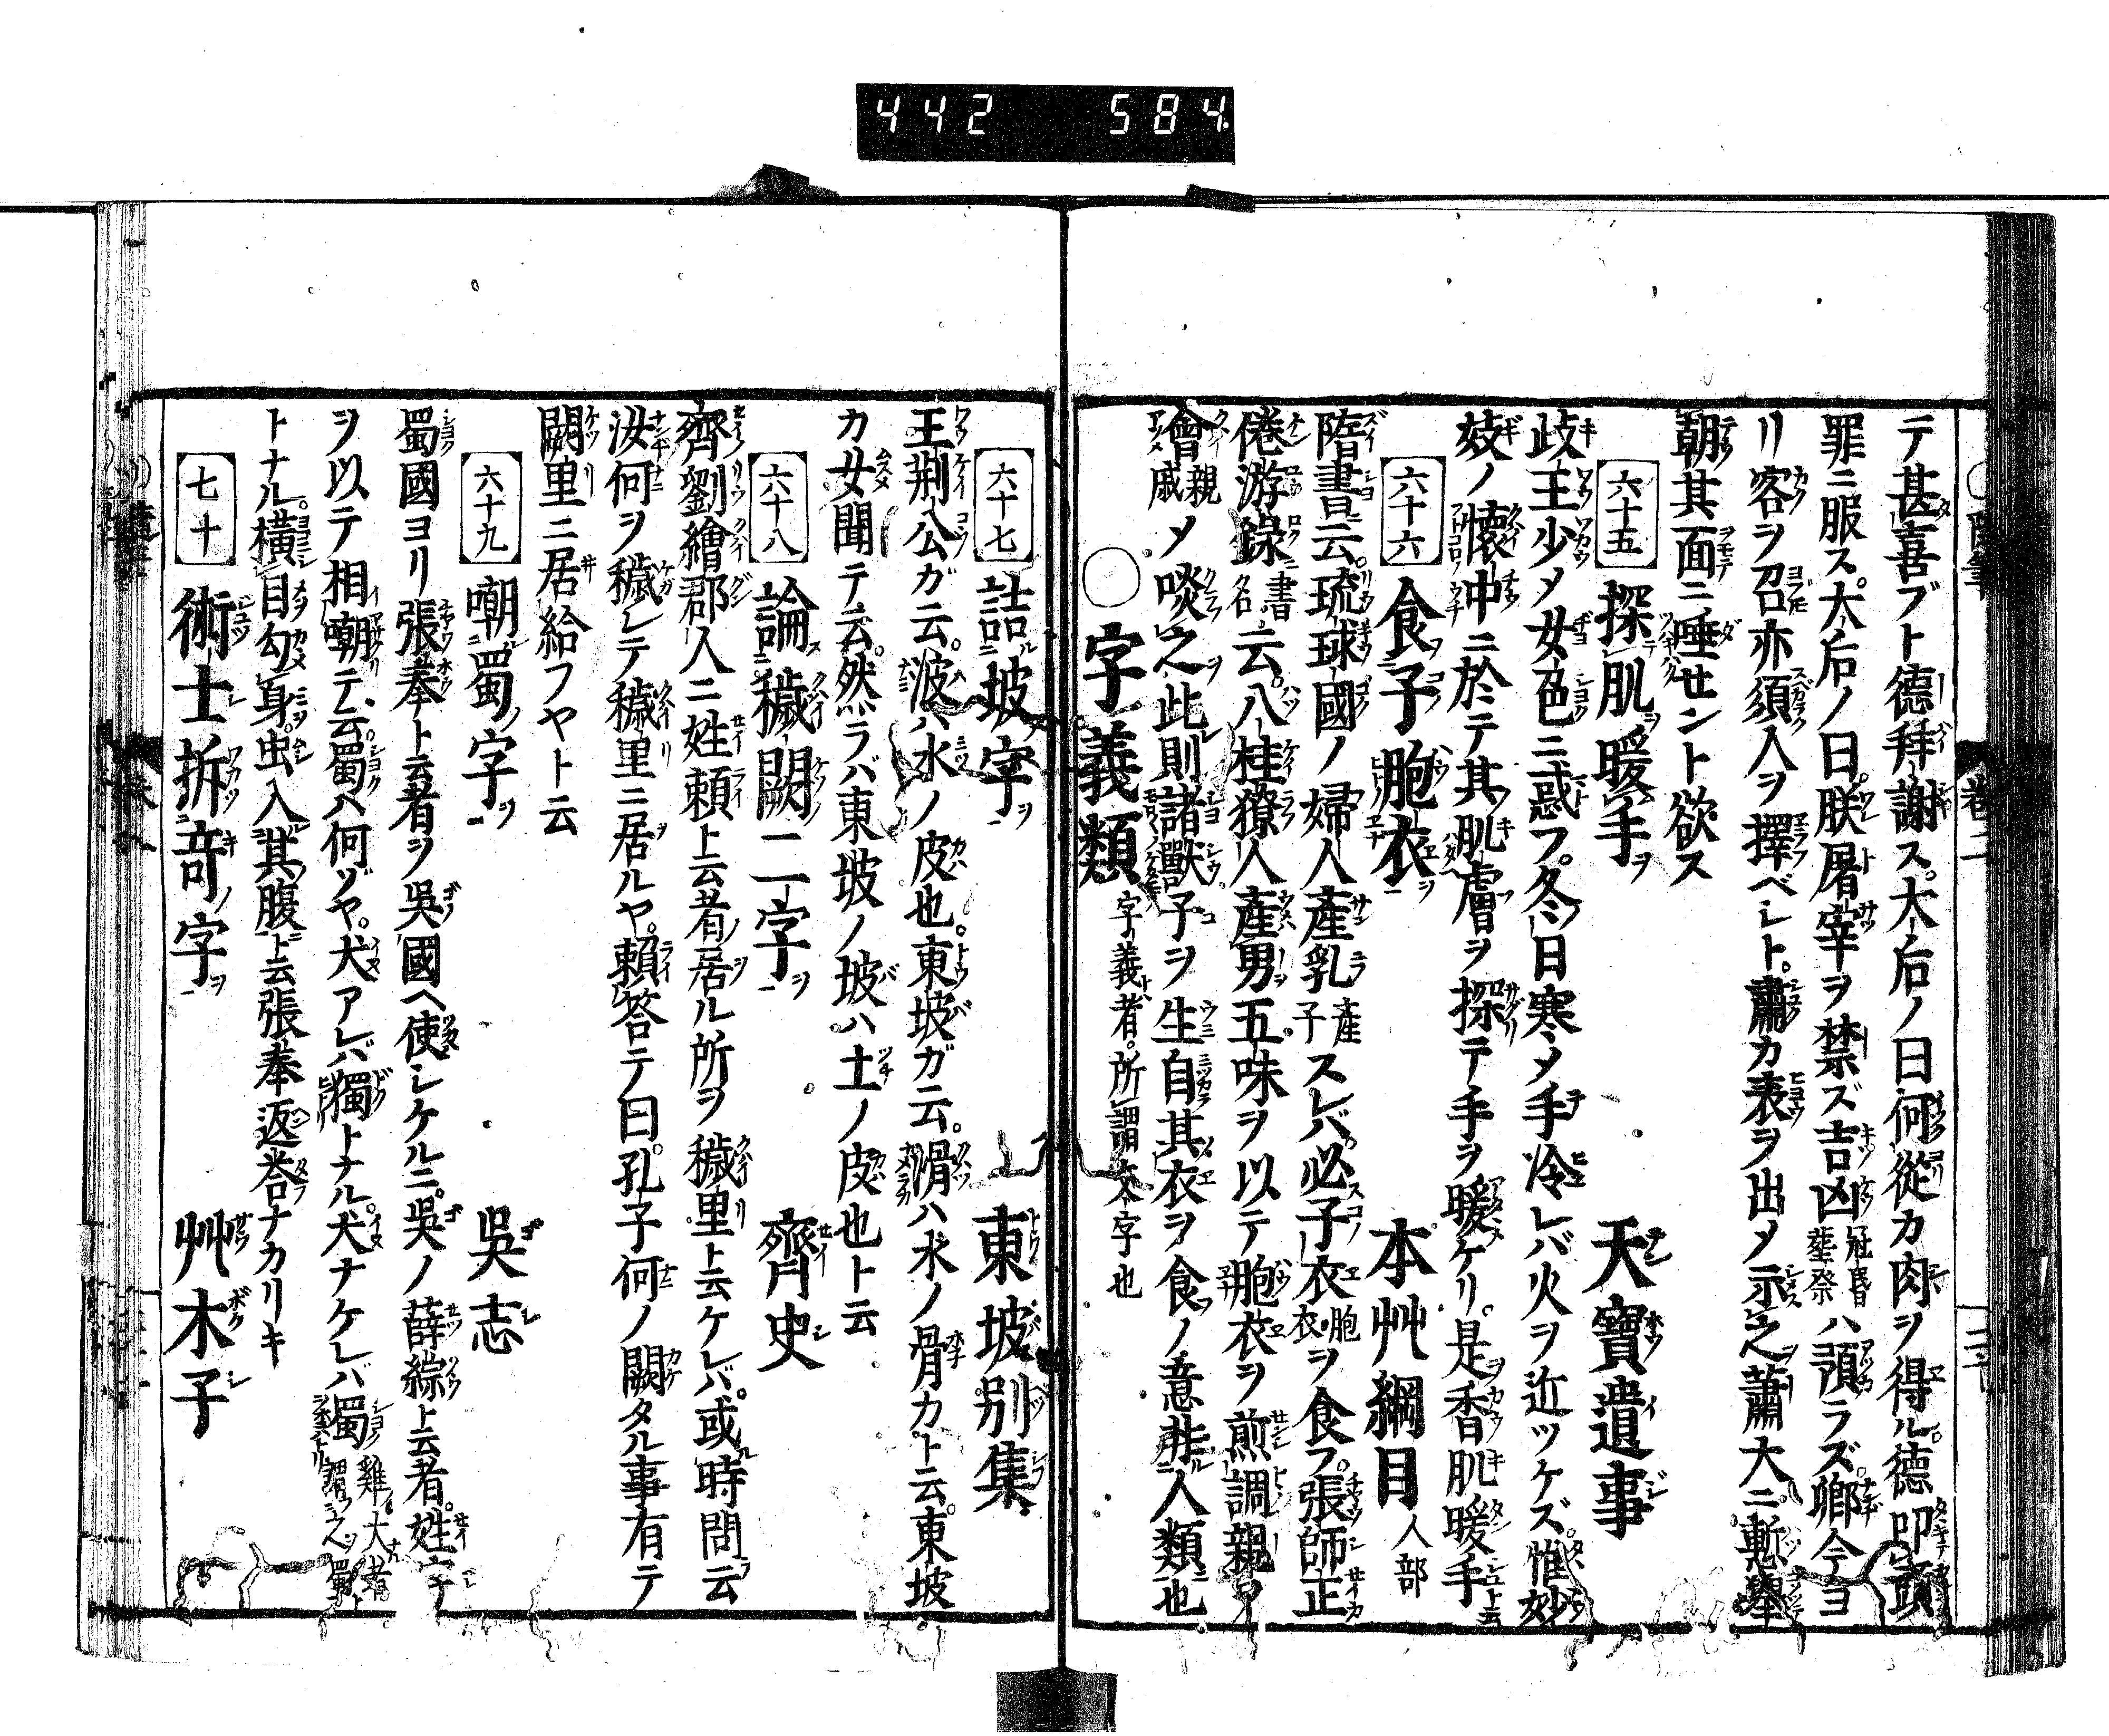 442 584
テ甚喜ブト德拜謝ス。大后ノ曰何從カ肉ヲ得ル。德叩頭
罪ニ服ス。大后ノ曰。朕屠宰ヲ禁ズ吉凶冠昏葬祭ハ預ラズ。卿今ヨ
リ客ヲ召亦須人ヲ擇ベレト。肅カ表ヲ出メ示之蕭大ニ慙擧
朝其面ニ唾セント欲ス
六十五 探肌暖手 天寶遺事
歧王少メ女色ニ惑フ。冬日寒メ手冷レバ火ヲ近ツケズ。惟妙
妓ノ懷中ニ於テ其肌膚ヲ探テ手ヲ暖ケリ。是香肌暖手ト云
六十六 食子胞衣 本艸綱目人部
隋書云。琉球國ノ婦人產乳產子スレバ。必子衣胞衣ヲ食フ。張師正
倦游錄書名云。八桂獠人產男五味ヲ以テ胞衣ヲ煎調親ヲ
會親戚メ啖之此則諸獸子ヲ生自其衣ヲ食ノ意非人類也
○字義類 字義者。所謂文字也
六十七 詰坡字 東坡別集
王荆公ガ云。波ハ水ノ皮也。東坡ガ云。滑ハ水ノ骨カト云。東坡。
カ女聞テ云。然ラバ東坡ノ坡ハ土ノ皮也ト云
六十八 論穢闕二字 齊史
齊劉繪郡人ニ姓賴ト云者居ル所ヲ穢里ト云ケレバ。或時問云
汝何ヲ穢レテ穢里ニ居ルヤ。賴答テ曰。孔子何ノ闕タル事有テ
闕里ニ居給フヤト云
六十九 嘲蜀字 吳志
蜀國ヨリ張奉ト云者ヲ吳國ヘ使シケルニ。吳ノ薛綜ト云者。姓字
ヲ以テ相嘲テ云。蜀ハ何ゾヤ。犬アレバ獨トナル。犬ナケレバ蜀雞大者謂之蜀
トナル。橫目勾身。虫入其腹ト云張奉返荅ナカリキ
七十 術士拆竒字 艸木子